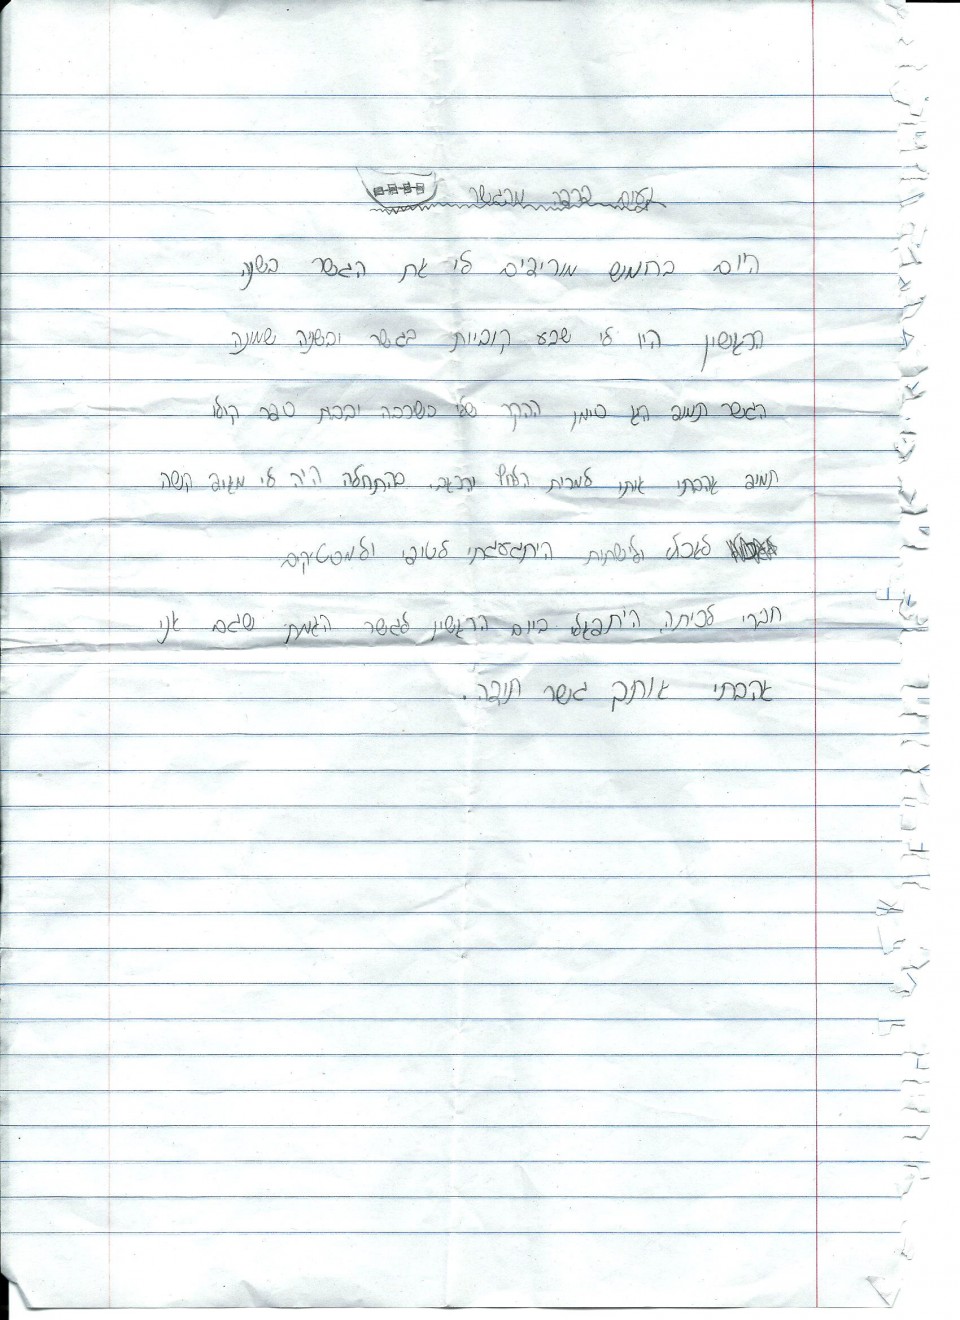 פעם פרפה מהגשר
היום בחמש מורידים לי את הגשר בשנה
הרגשין היו לי שבע קוביות בגשר ובשניה שמונה
הגשר תמיד היה סימן ההקר שלי כשרבה יבבת ספר קולו
תמיד אהבתי אותו למרות הלחץ והכאב. בהתחלה היה לי מגיד קשה
לאכול ולישתות היתגעגתי לטופי ולמסטיקים
חברי לכיתה היתפגלו ביום הרגשין לגשר הגמת שגם אני
אהבתי אותך גשר תודה.